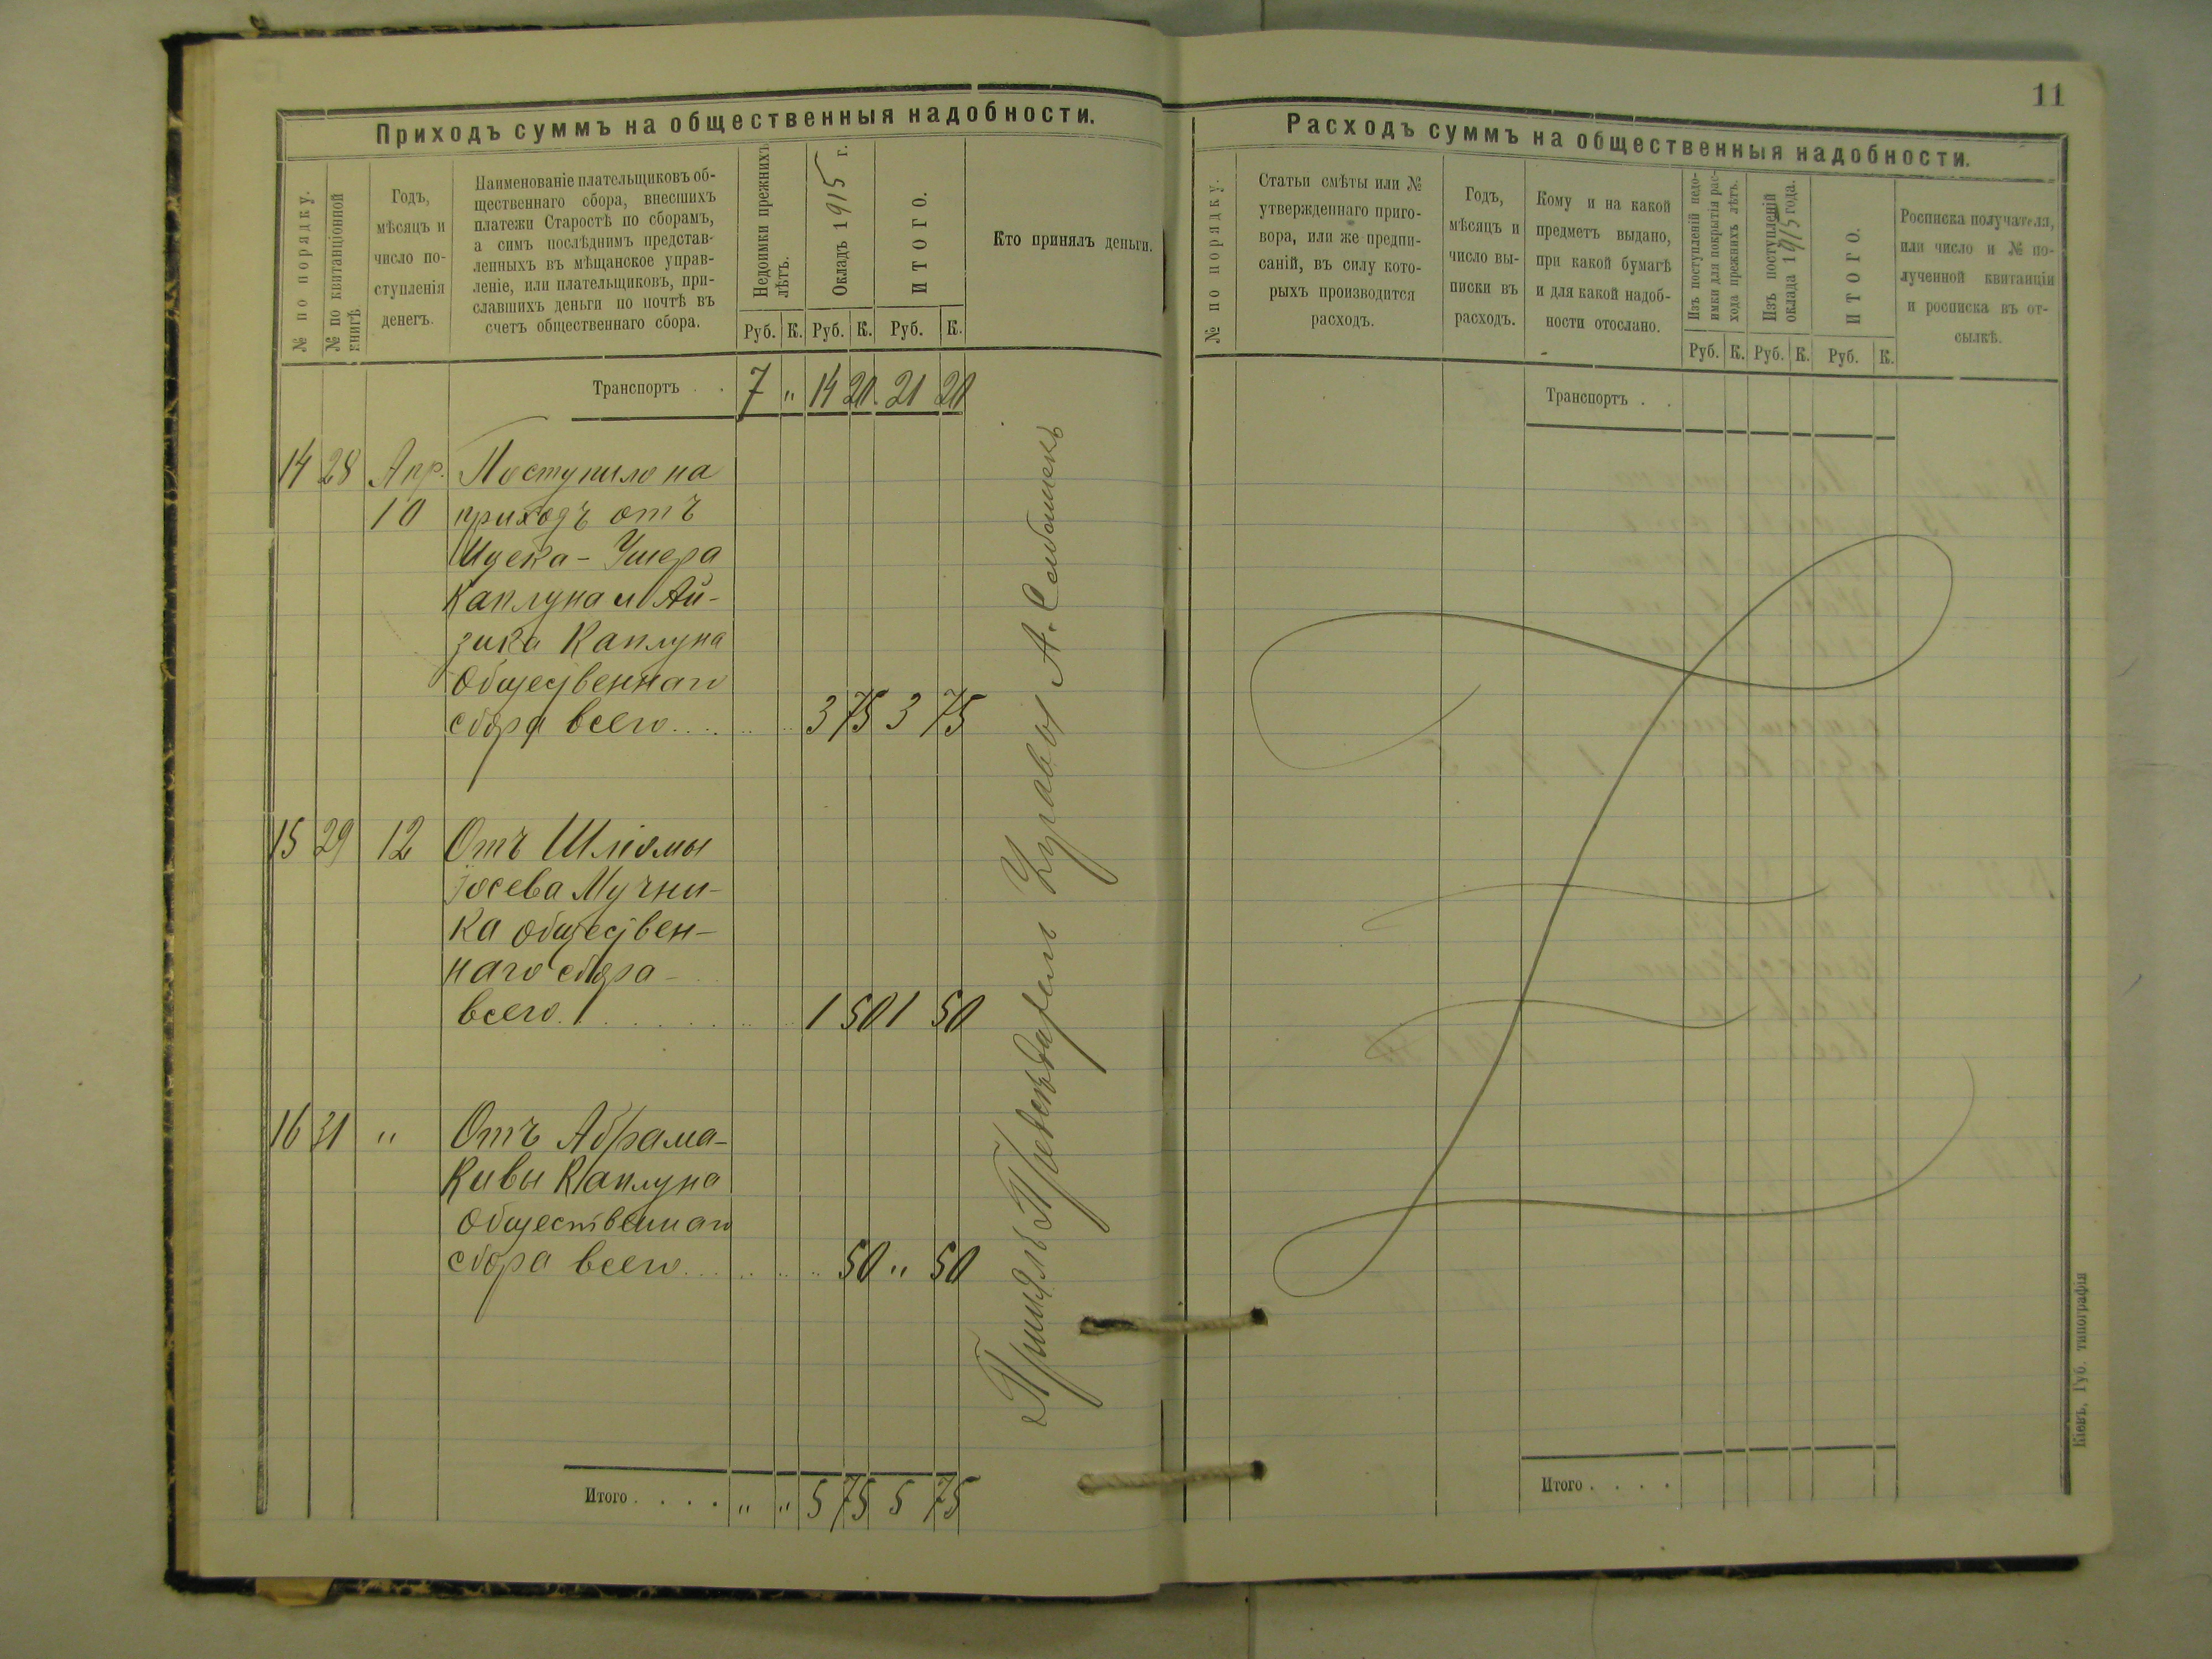 11
Приходъ суммъ на общественныя надобности.
№ по порядку.
№ по квитанціонной
книгѣ
Годъ,
мѣсяцъ и
число по-
ступленія
денегъ.
Наименованіе плательщиковъ об-
щественнаго сбора, внесшихъ
платежи Старостѣ по сборамъ,
а симъ послѣднимъ представ-
ленныхъ въ мѣщанское управ-
леніе, или плательщиковъ, при-
славшихъ деньги по почтѣ въ
счетъ общественнаго сбора.
Недоимки прежнихъ
лѣтъ.
Окладъ 1915 г.
ИТОГО.
Руб. К. Руб. К. Руб. К.
Кто принялъ деньги.
Транспортъ . . 7 " 14 20 21 20
14 28 Апр. Поступило на
10 приходъ отъ
Ицека-Ушера
Каплуна и Ай-
зика Каплуна
Общественнаго
сбора всего.... 3 75 3 75
15 29 12 Отъ Шліомы
Іосева Мучни-
ка обществен-
наго сбора
всего. 1 50 1 50
16 31 " Отъ Абрама-
Кивы Каплуна
Общественнаго
сбора всего... 50 " 50
Итого . . . . " " 5 75 5 75
Принялъ Управы А.
Расходъ суммъ на общественныя надобности.
№ по порядку.
Статьи смѣты или №
утвержденнаго приго-
вора, или же предпи-
саній, въ силу кото-
рыхъ производится
расходъ.
Годъ,
мѣсяцъ и
число вы-
писки въ
расходъ.
Кому и на какой
предметъ выдано,
при какой бумагѣ
и для какой надоб-
ности отослано.
Изъ поступленій недо-
имки для покрытія рас-
хода прежнихъ лѣтъ.
Изъ поступленій
оклада 1915 года.
ИТОГО.
Руб. К. Руб. К. Руб. К.
Росписка получателя,
или число и № по-
лученной квитанціи
и росписка въ от-
сылкѣ.
Транспортъ . .
Итого . . . .
Кіевъ, Губ. типографія